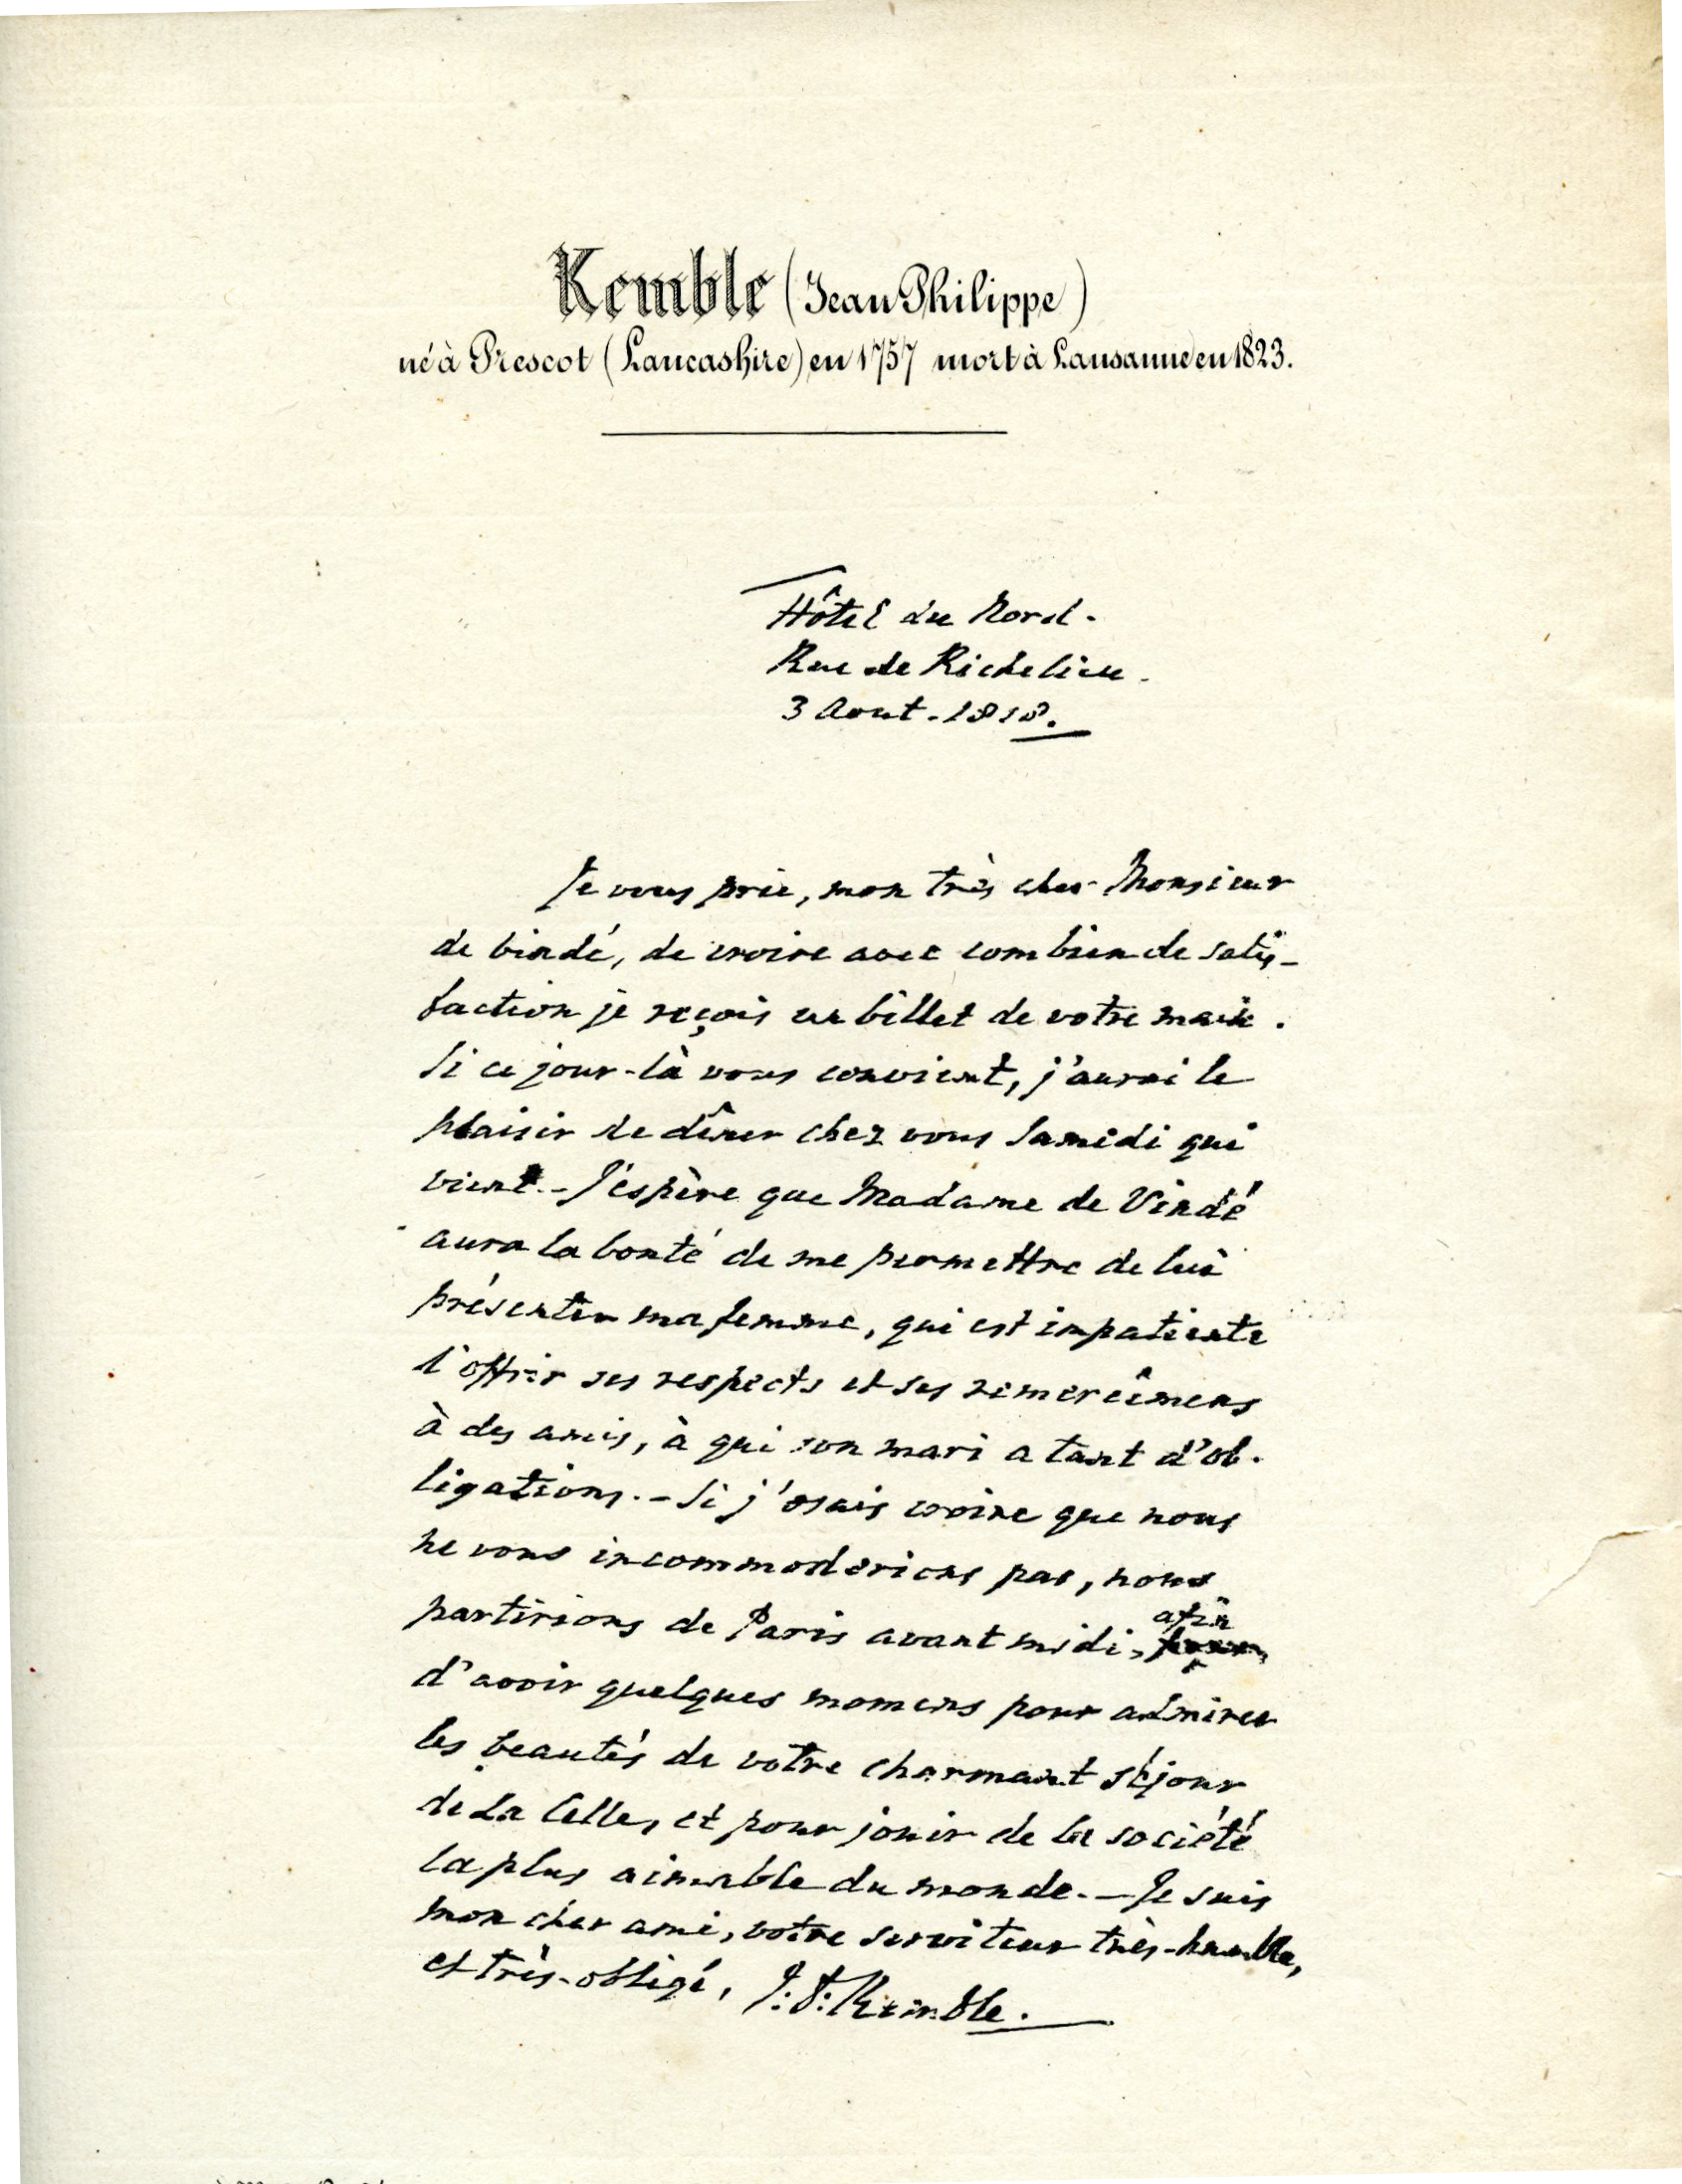 Kemble (Jean Philippe)
né à Prescot (Lancashire) en 1757 mort à Lausanne en 1823.
Hôtel du Nord.
Rue de Richelieu.
3 Aout. 1818.
Je vous prie, mon très cher Monsieur
de Vindé, de croire avec combien de satis-
faction je reçois un billet de votre main.
Si ce jour-là vous convient, j'aurai le
plaisir de dîner chez vous Samedi qui
vient. - J'espère que Madame de Vindé
aura la bonté de me permettre de lui
présenter ma femme, qui est impatiente
d'offrir ses respects et ses remercîmens
à des amis, à qui son mari a tant d'ob-
ligations. - Si j'osais croire que nous
ne vous incommoderions pas, nous
partirions de Paris avant midi, afin
d'avoir quelques momens pour admirer
les beautés de votre charmant séjour
de La Celle, et pour jouir de la société
la plus aimable du monde. - Je suis
mon cher ami, votre serviteur très-humble,
et très-obligé, J: P: Kemble.